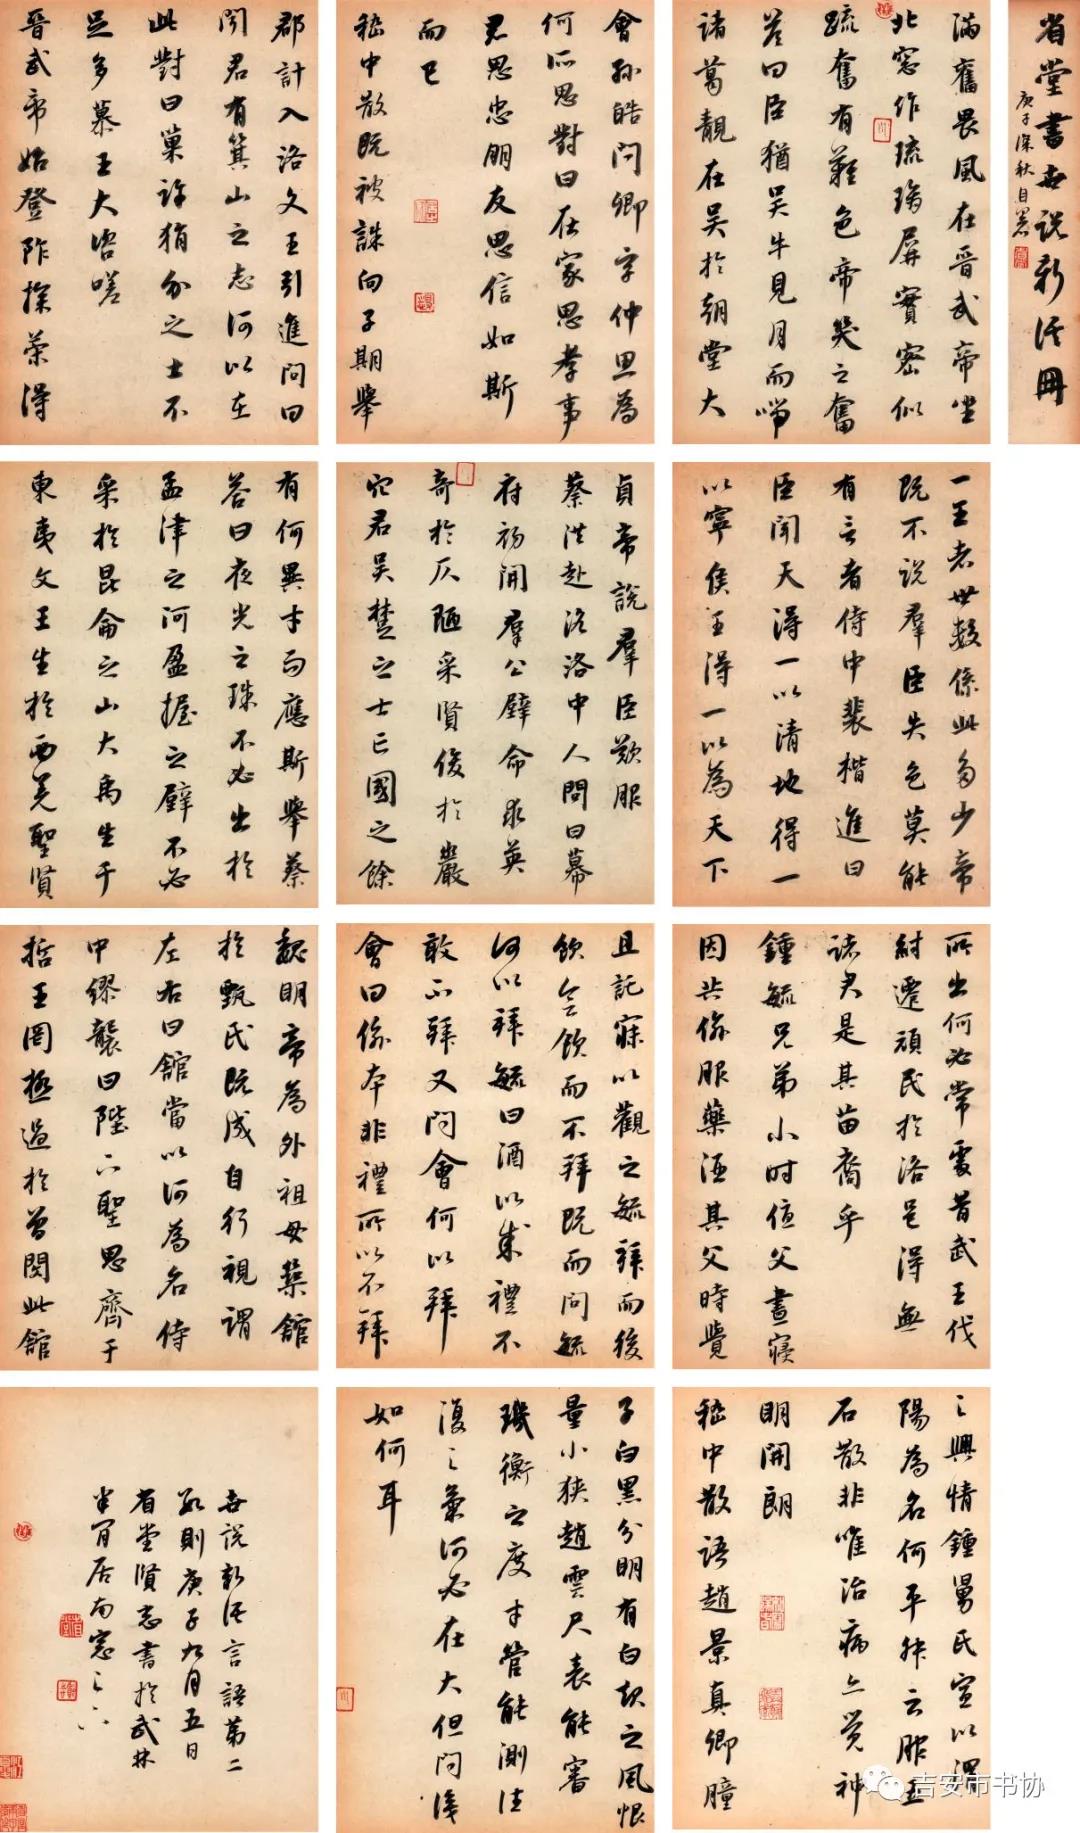 省堂書世說新語冊
庚子深秋自署
滿奮畏風在晉武帝坐
北窗作琉璃屏實密似
疏奮有難色帝笑之奮
答曰臣猶吳牛見月而喘
諸葛靚在吳於朝堂大
會孫皓問卿字仲思為
何所思對曰在家思孝事
君思忠朋友思信如斯
而已
嵇中散既被誅向子期舉
郡計入洛文王引進問曰
聞君有箕山之志何以在
此對曰巢許狷介之士不
足多慕王大咨嗟
晉武帝始登阼探策得
一王者世數係此多少帝
既不說羣臣失色莫能
有言者侍中裴楷進曰
臣聞天得一以清地得一
以寧侯王得一以為天下
貞帝說羣臣歎服
蔡洪赴洛洛中人問曰幕
府初開羣公辟命求英
奇於仄陋采賢俊於巖
穴君吳楚之士亡國之餘
有何異才而應斯舉蔡
答曰夜光之珠不必出於
孟津之河盈握之璧不必
采於昆侖之山大禹生于
東夷文王生於西羌聖賢
所出何必常處昔武王伐
紂遷頑民於洛邑得無
諸君是其苗裔乎
鍾毓兄弟小时值父晝寢
因共偷服藥酒其父時覺
且託寐以觀之毓拜而後
飲會飲而不拜既而問毓
何以拜毓曰酒以成禮不
敢不拜又問會何以拜
會曰偷本非禮所以不拜
魏明帝為外祖母築館
於甄氏既成自行視謂
左右曰館當以何為名侍
中繆襲曰陛下聖思齊于
哲王罔極過於曾閔此館
之興情鍾舅氏宜以渭
陽為名何平叔云服五
石散非唯治病亦覺神
明開朗
嵇中散語趙景真卿瞳
子白黑分明有白起之風恨
量小狹趙雲尺表能審
璣衡之度寸管能測往
復之氣何必在大但問識
如何耳
世說新語言語第二
數則庚子九月五日
省堂賢志書於武林
半間居南窓之下
吉安市书协